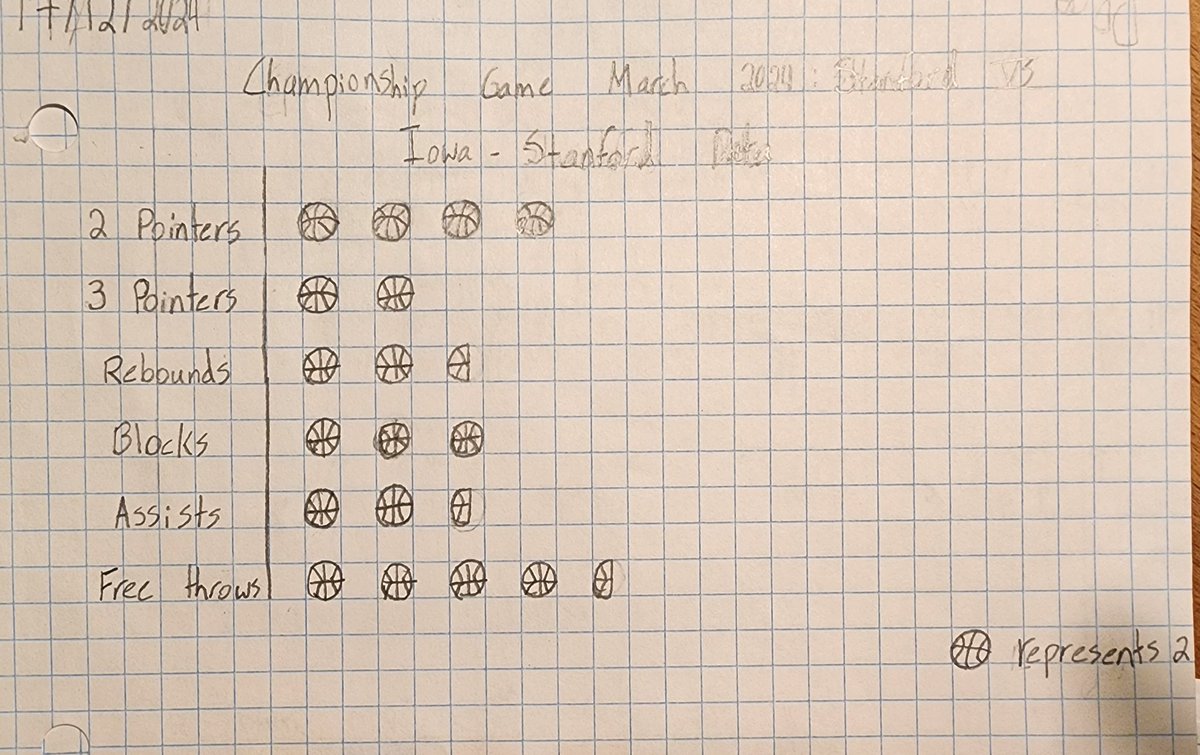 Championship Game March 2024: Stanford VS
Iowa - Stanford Data
2 Pointers
3 Pointers
Rebounds
Blocks
Assists
Free throws
represents 2